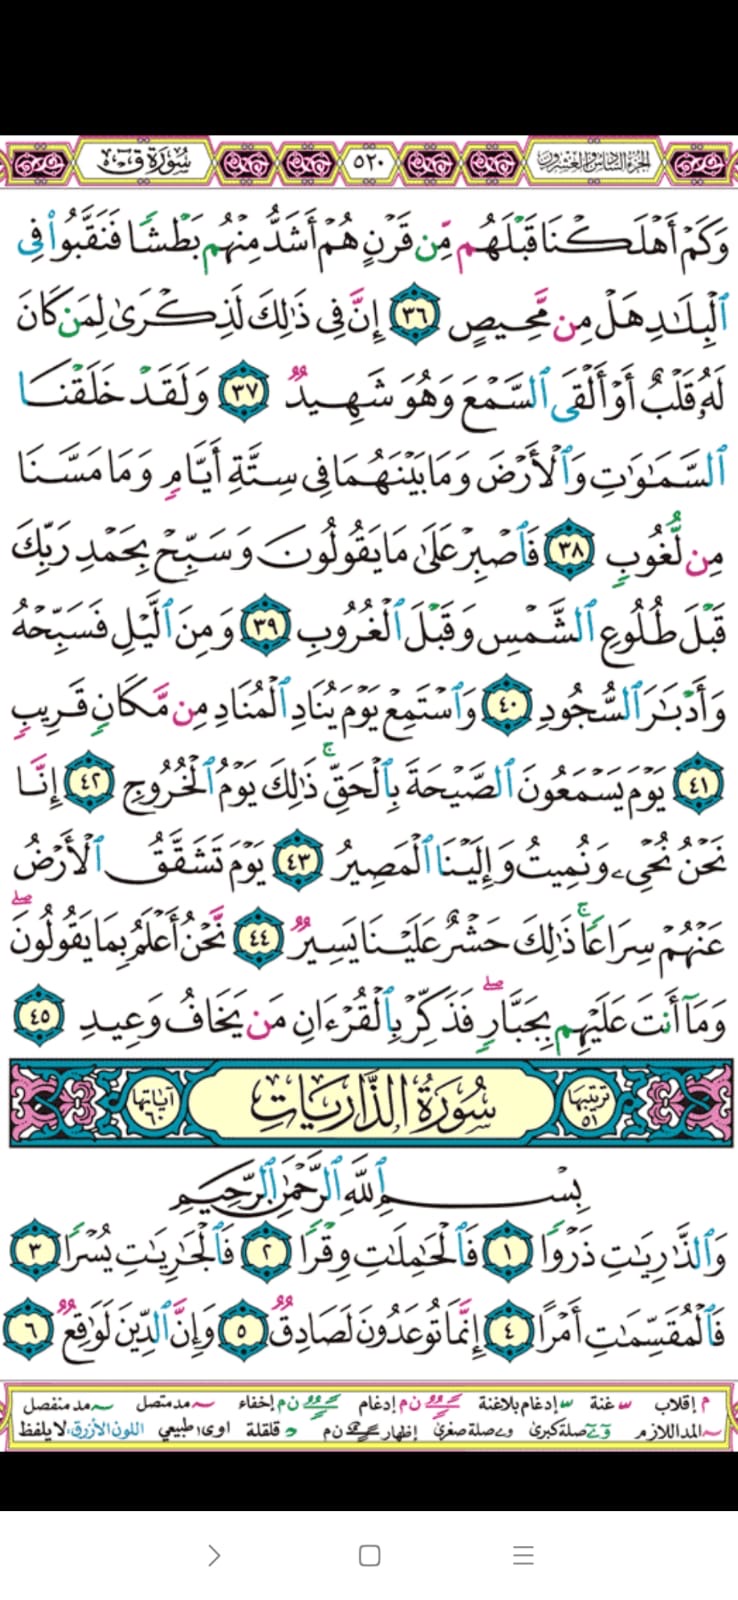 الجزء السادس والعشرون ٥٢٠ سُورَةُ قٓ
وَكَمْ أَهْلَكْنَا قَبْلَهُم مِّن قَرْنٍ هُمْ أَشَدُّ مِنْهُم بَطْشًا فَنَقَّبُوا۟ فِى
ٱلْبِلَٰدِ هَلْ مِن مَّحِيصٍ ٣٦ إِنَّ فِى ذَٰلِكَ لَذِكْرَىٰ لِمَن كَانَ
لَهُۥ قَلْبٌ أَوْ أَلْقَى ٱلسَّمْعَ وَهُوَ شَهِيدٌ ٣٧ وَلَقَدْ خَلَقْنَا
ٱلسَّمَٰوَٰتِ وَٱلْأَرْضَ وَمَا بَيْنَهُمَا فِى سِتَّةِ أَيَّامٍ وَمَا مَسَّنَا
مِن لُّغُوبٍ ٣٨ فَٱصْبِرْ عَلَىٰ مَا يَقُولُونَ وَسَبِّحْ بِحَمْدِ رَبِّكَ
قَبْلَ طُلُوعِ ٱلشَّمْسِ وَقَبْلَ ٱلْغُرُوبِ ٣٩ وَمِنَ ٱلَّيْلِ فَسَبِّحْهُ
وَأَدْبَٰرَ ٱلسُّجُودِ ٤٠ وَٱسْتَمِعْ يَوْمَ يُنَادِ ٱلْمُنَادِ مِن مَّكَانٍ قَرِيبٍ
٤١ يَوْمَ يَسْمَعُونَ ٱلصَّيْحَةَ بِٱلْحَقِّ ۚ ذَٰلِكَ يَوْمُ ٱلْخُرُوجِ ٤٢ إِنَّا
نَحْنُ نُحْىِۦ وَنُمِيتُ وَإِلَيْنَا ٱلْمَصِيرُ ٤٣ يَوْمَ تَشَقَّقُ ٱلْأَرْضُ
عَنْهُمْ سِرَاعًا ۚ ذَٰلِكَ حَشْرٌ عَلَيْنَا يَسِيرٌ ٤٤ نَّحْنُ أَعْلَمُ بِمَا يَقُولُونَ ۖ
وَمَآ أَنتَ عَلَيْهِم بِجَبَّارٍ ۖ فَذَكِّرْ بِٱلْقُرْءَانِ مَن يَخَافُ وَعِيدِ ٤٥
ترتيبها ٥١ سُورَةُ الذَّارِيَاتِ آياتها ٦٠
بِسْمِ ٱللَّهِ ٱلرَّحْمَٰنِ ٱلرَّحِيمِ
وَٱلذَّٰرِيَٰتِ ذَرْوًا ١ فَٱلْحَٰمِلَٰتِ وِقْرًا ٢ فَٱلْجَٰرِيَٰتِ يُسْرًا ٣
فَٱلْمُقَسِّمَٰتِ أَمْرًا ٤ إِنَّمَا تُوعَدُونَ لَصَادِقٌ ٥ وَإِنَّ ٱلدِّينَ لَوَٰقِعٌ ٦
م إقلاب غنة إدغام بلاغنة ن م إدغام ن م إخفاء مد متصل مد منفصل
المد اللازم صلة كبرى صلة صغرى إظهار ن م قلقلة اوى طبيعي اللون الأزرق: لا يلفظ